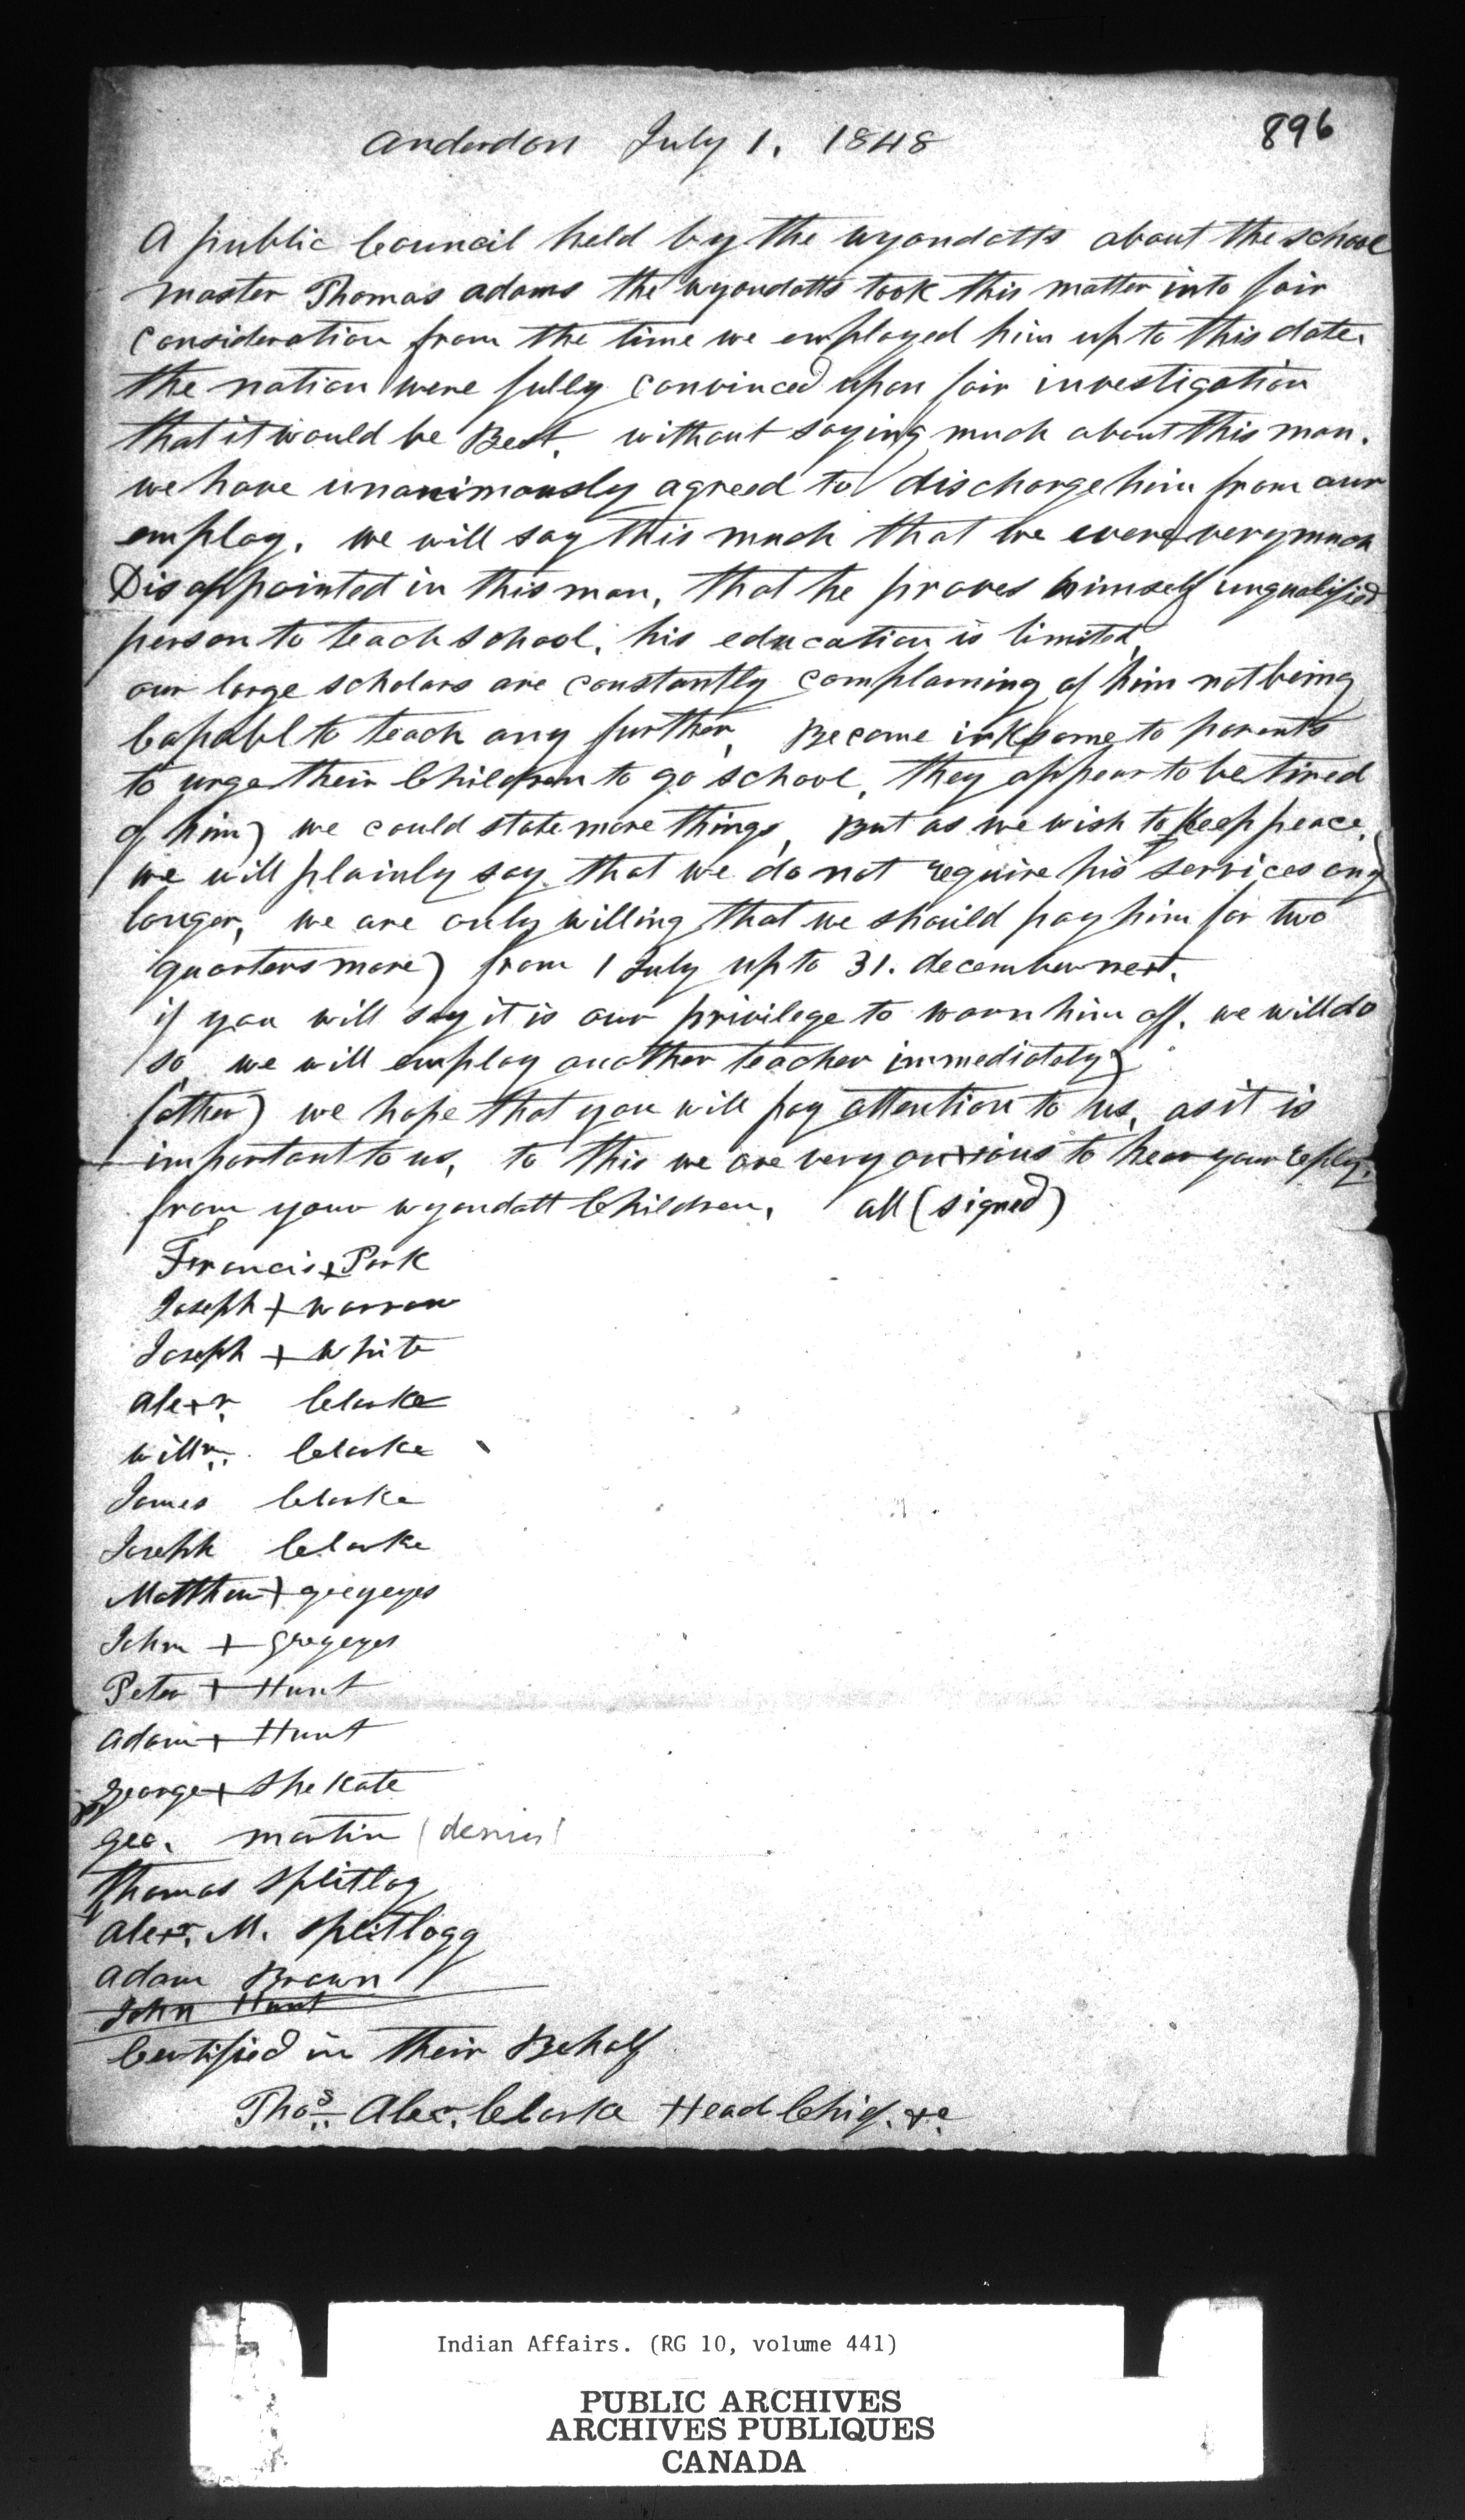 896
Anderdon July 1. 1848
A public Council held by the wyandotts about the school
master Thomas adams the wyandotts took this matter into fair
Consideration from the time we employed him up to this date.
the nation were fully Convinced upon fair investigation
that it would be Best, without saying much about this man.
we have unanimously agreed to discharge him from our
employ. we will say this much that we were very much
Disappointed in this man, that he proves himself unqualified
person to teach school, his education is limited,
our large scholars are constantly complaining of him not being
Capabl to teach any further, Become irksome to parents
to urge their Children to go school, they appear to be tired
of him) we could state more things, But as we wish to Keep peace,
we will plainly say that we do not require his services any
longer, we are only willing that we should pay him for two
quarters more) from 1 July up to 31. december next.
if you will say it is our privilege to warn him off, we will do
so we will employ another teacher immediately)
father) we hope that you will pay attention to us, as it is
important to us, to this we are very anxious to hear your reply.
from your wyandott Children. all (signed)
Francis + Park
Joseph + warrow
Joseph + White
Alexr. Clarke
Willm. Clarke
James Clarke
Joseph Clarke
Matthew + greyeyes
John + greyeyes
Peter + Hunt
Adam + Hunt
George + Shekate
Geo. martin (denies)
Thomas Splitlog
Alexr. M. Splitlogg
Adam Brown
John Hunt
Certified in their Behalf
Thos. Alex. Clarke Head Chief. &c
Indian Affairs. (RG 10, volume 441)
PUBLIC ARCHIVES
ARCHIVES PUBLIQUES
CANADA